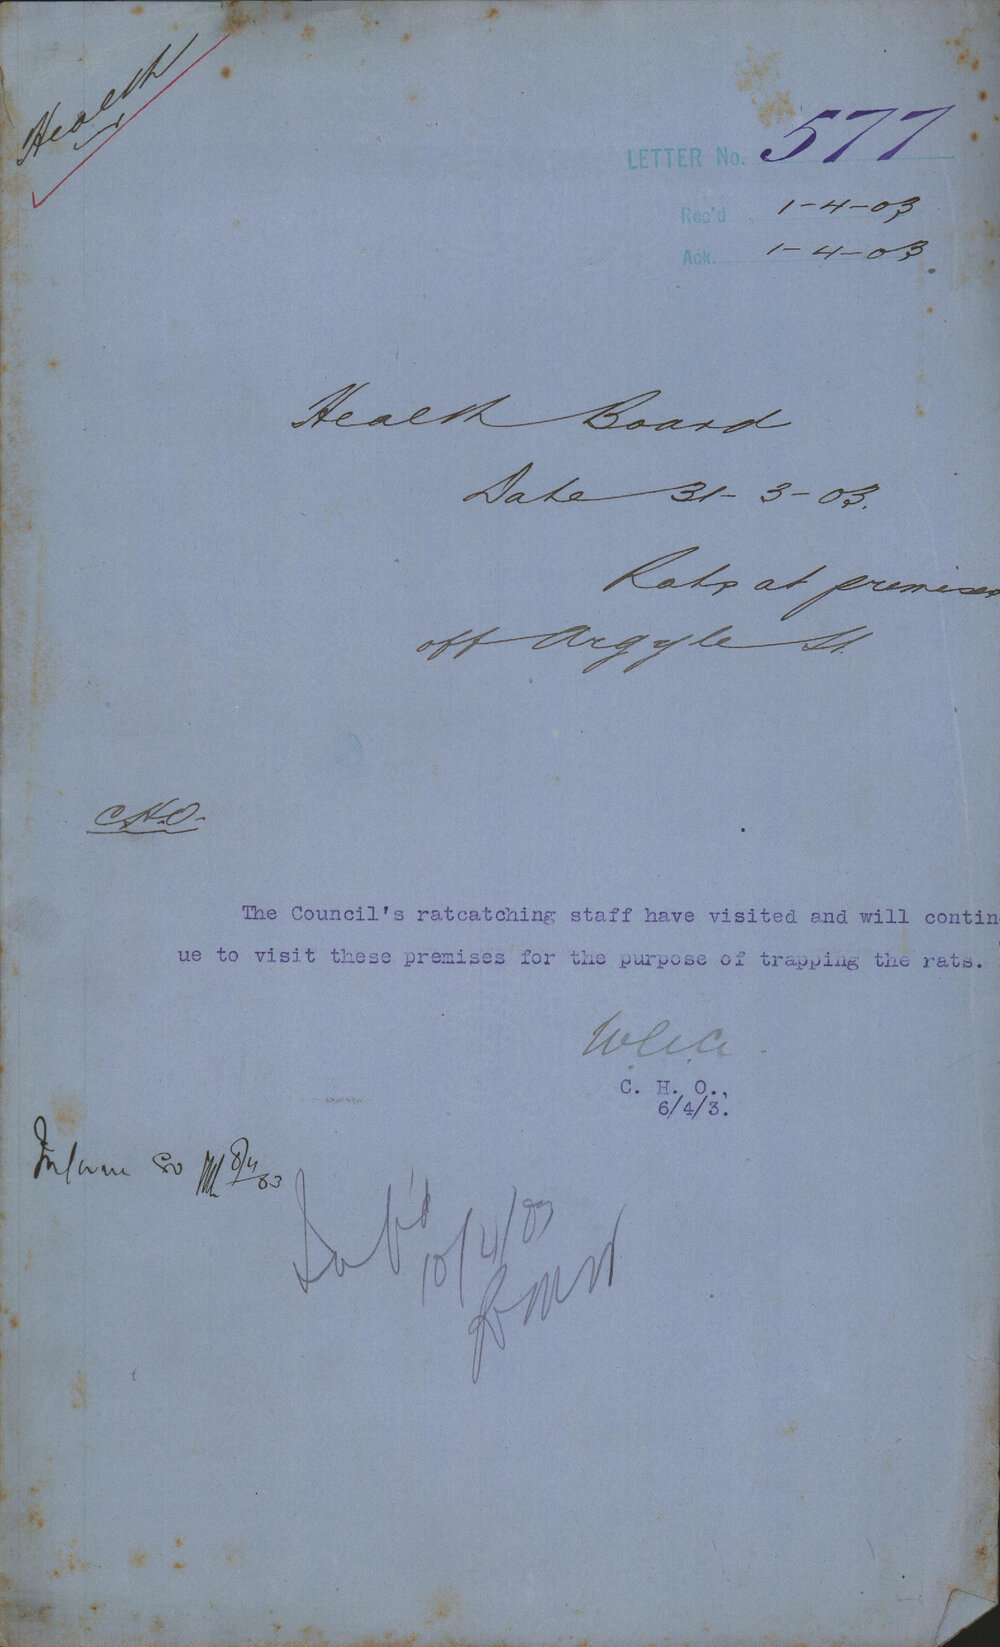 Health
LETTER No. 577
Rec'd 1-4-03
Ack. 1-4-03
Health Board
Date 31-3-03.
Rats at premises
off Argyle St.
C.H.O.
The Council's ratcatching staff have visited and will contin
ue to visit these premises for the purpose of trapping the rats.
C. H. O.,
6/4/3.
Inform so 8/4/03
Sub'd
10/4/03